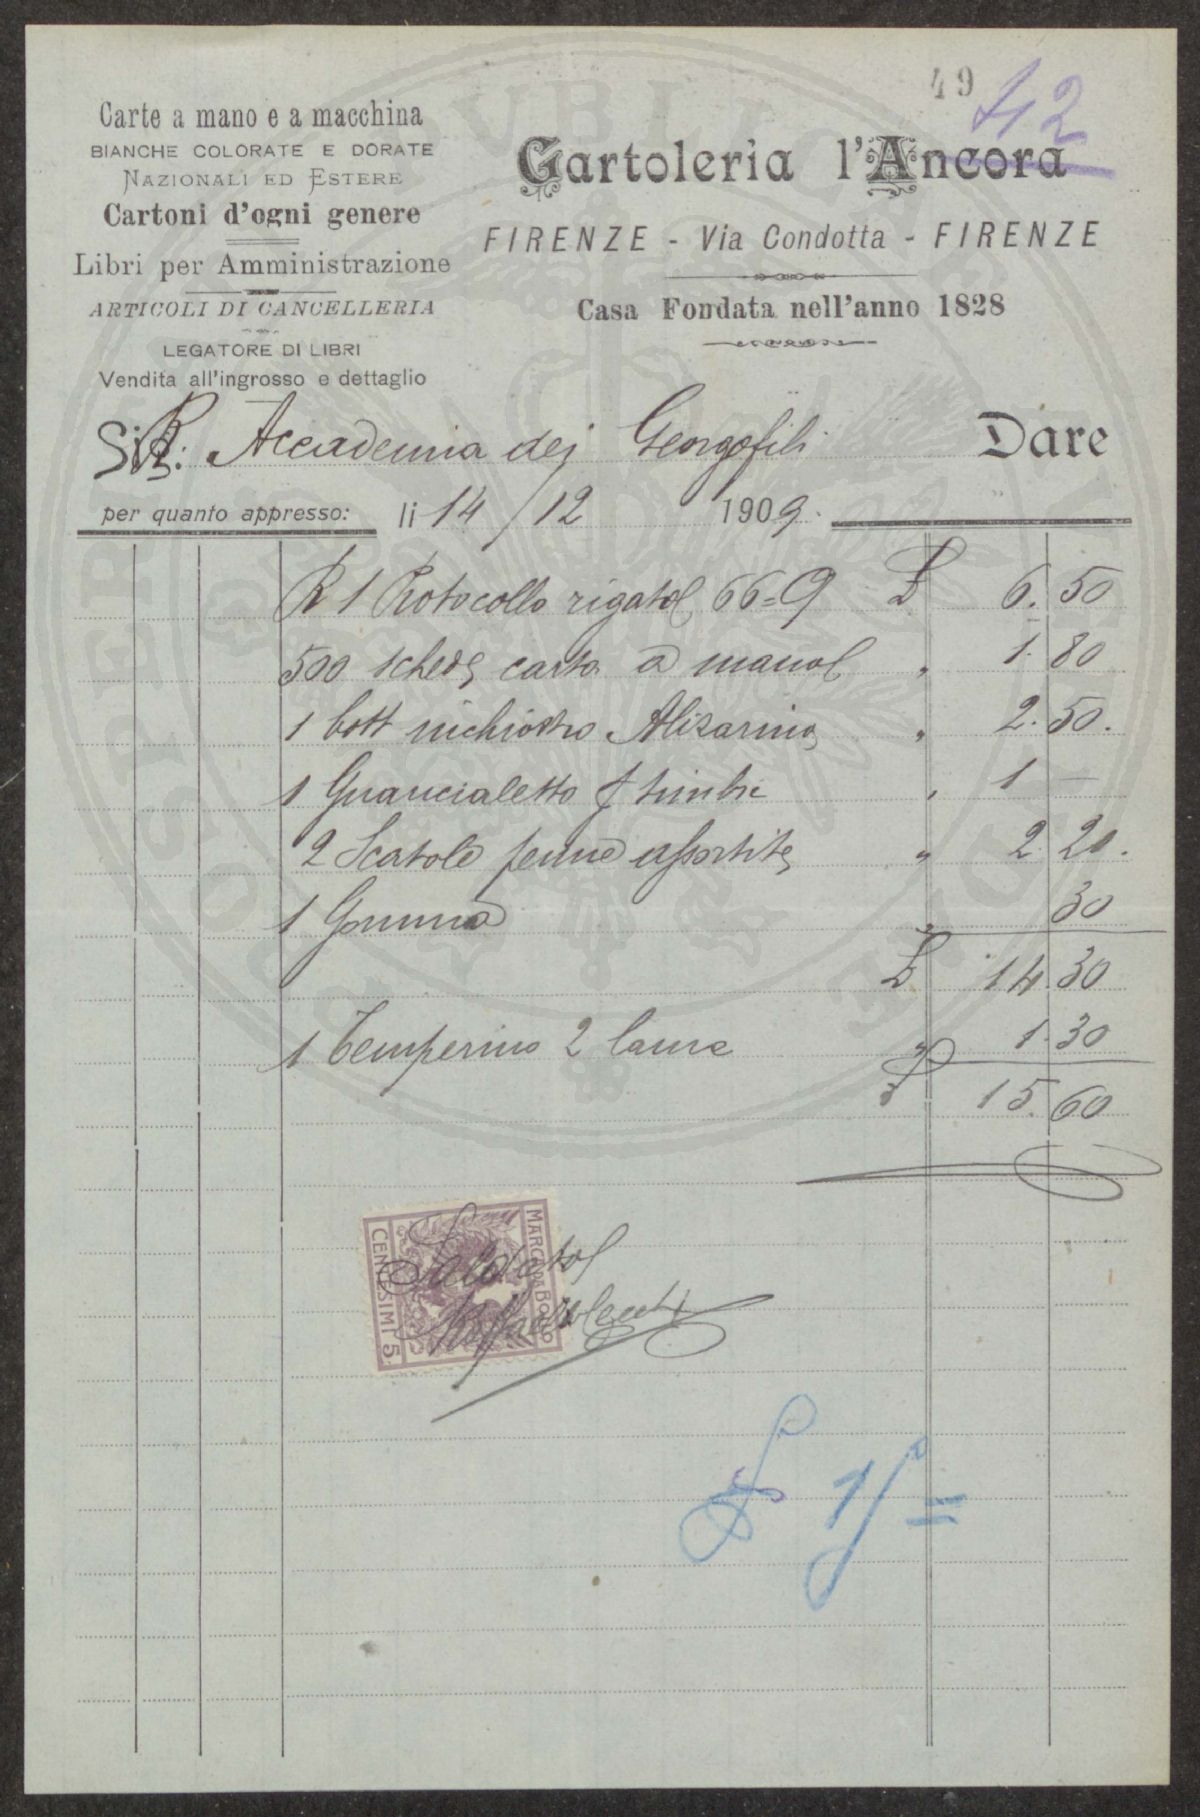 49
42
Carte a mano e a macchina
BIANCHE COLORATE E DORATE
NAZIONALI ED ESTERE
Cartoni d'ogni genere
Libri per Amministrazione
ARTICOLI DI CANCELLERIA
LEGATORE DI LIBRI
Vendita all'ingrosso e dettaglio
Cartoleria l'Ancora
FIRENZE - Via Condotta - FIRENZE
Casa Fondata nell'anno 1828
R. Accademia dei Georgofili Dare
per quanto appresso: li 14/12 1909.
R 1 Protocollo rigato 66=9 £ 6.50
500 schede carta a mano " 1.80
1 bott inchiostro Alizarina " 2.50.
1 Guancialetto timbri " 1 —
2 Scatole penne assortite " 2.20.
1 Gomma " 30
£ 14.30
1 Temperino 2 lame " 1.30
£ 15.60
MARCA DA BOLLO
CENTESIMI 5
Saldato
£ 15=